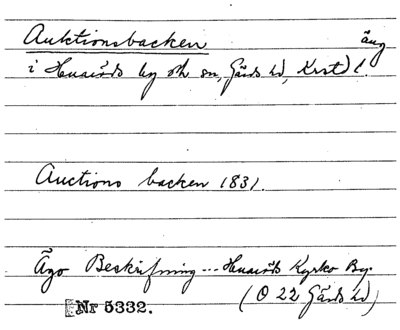 Auktionsbacken äng
i Huaröds by och sn, Gärds hd, Krst l.
Auctions backen 1831.
Ägo Beskrifning --- Huaröds Kyrko By.
(O 22 Gärds hd)
Nr 5332.